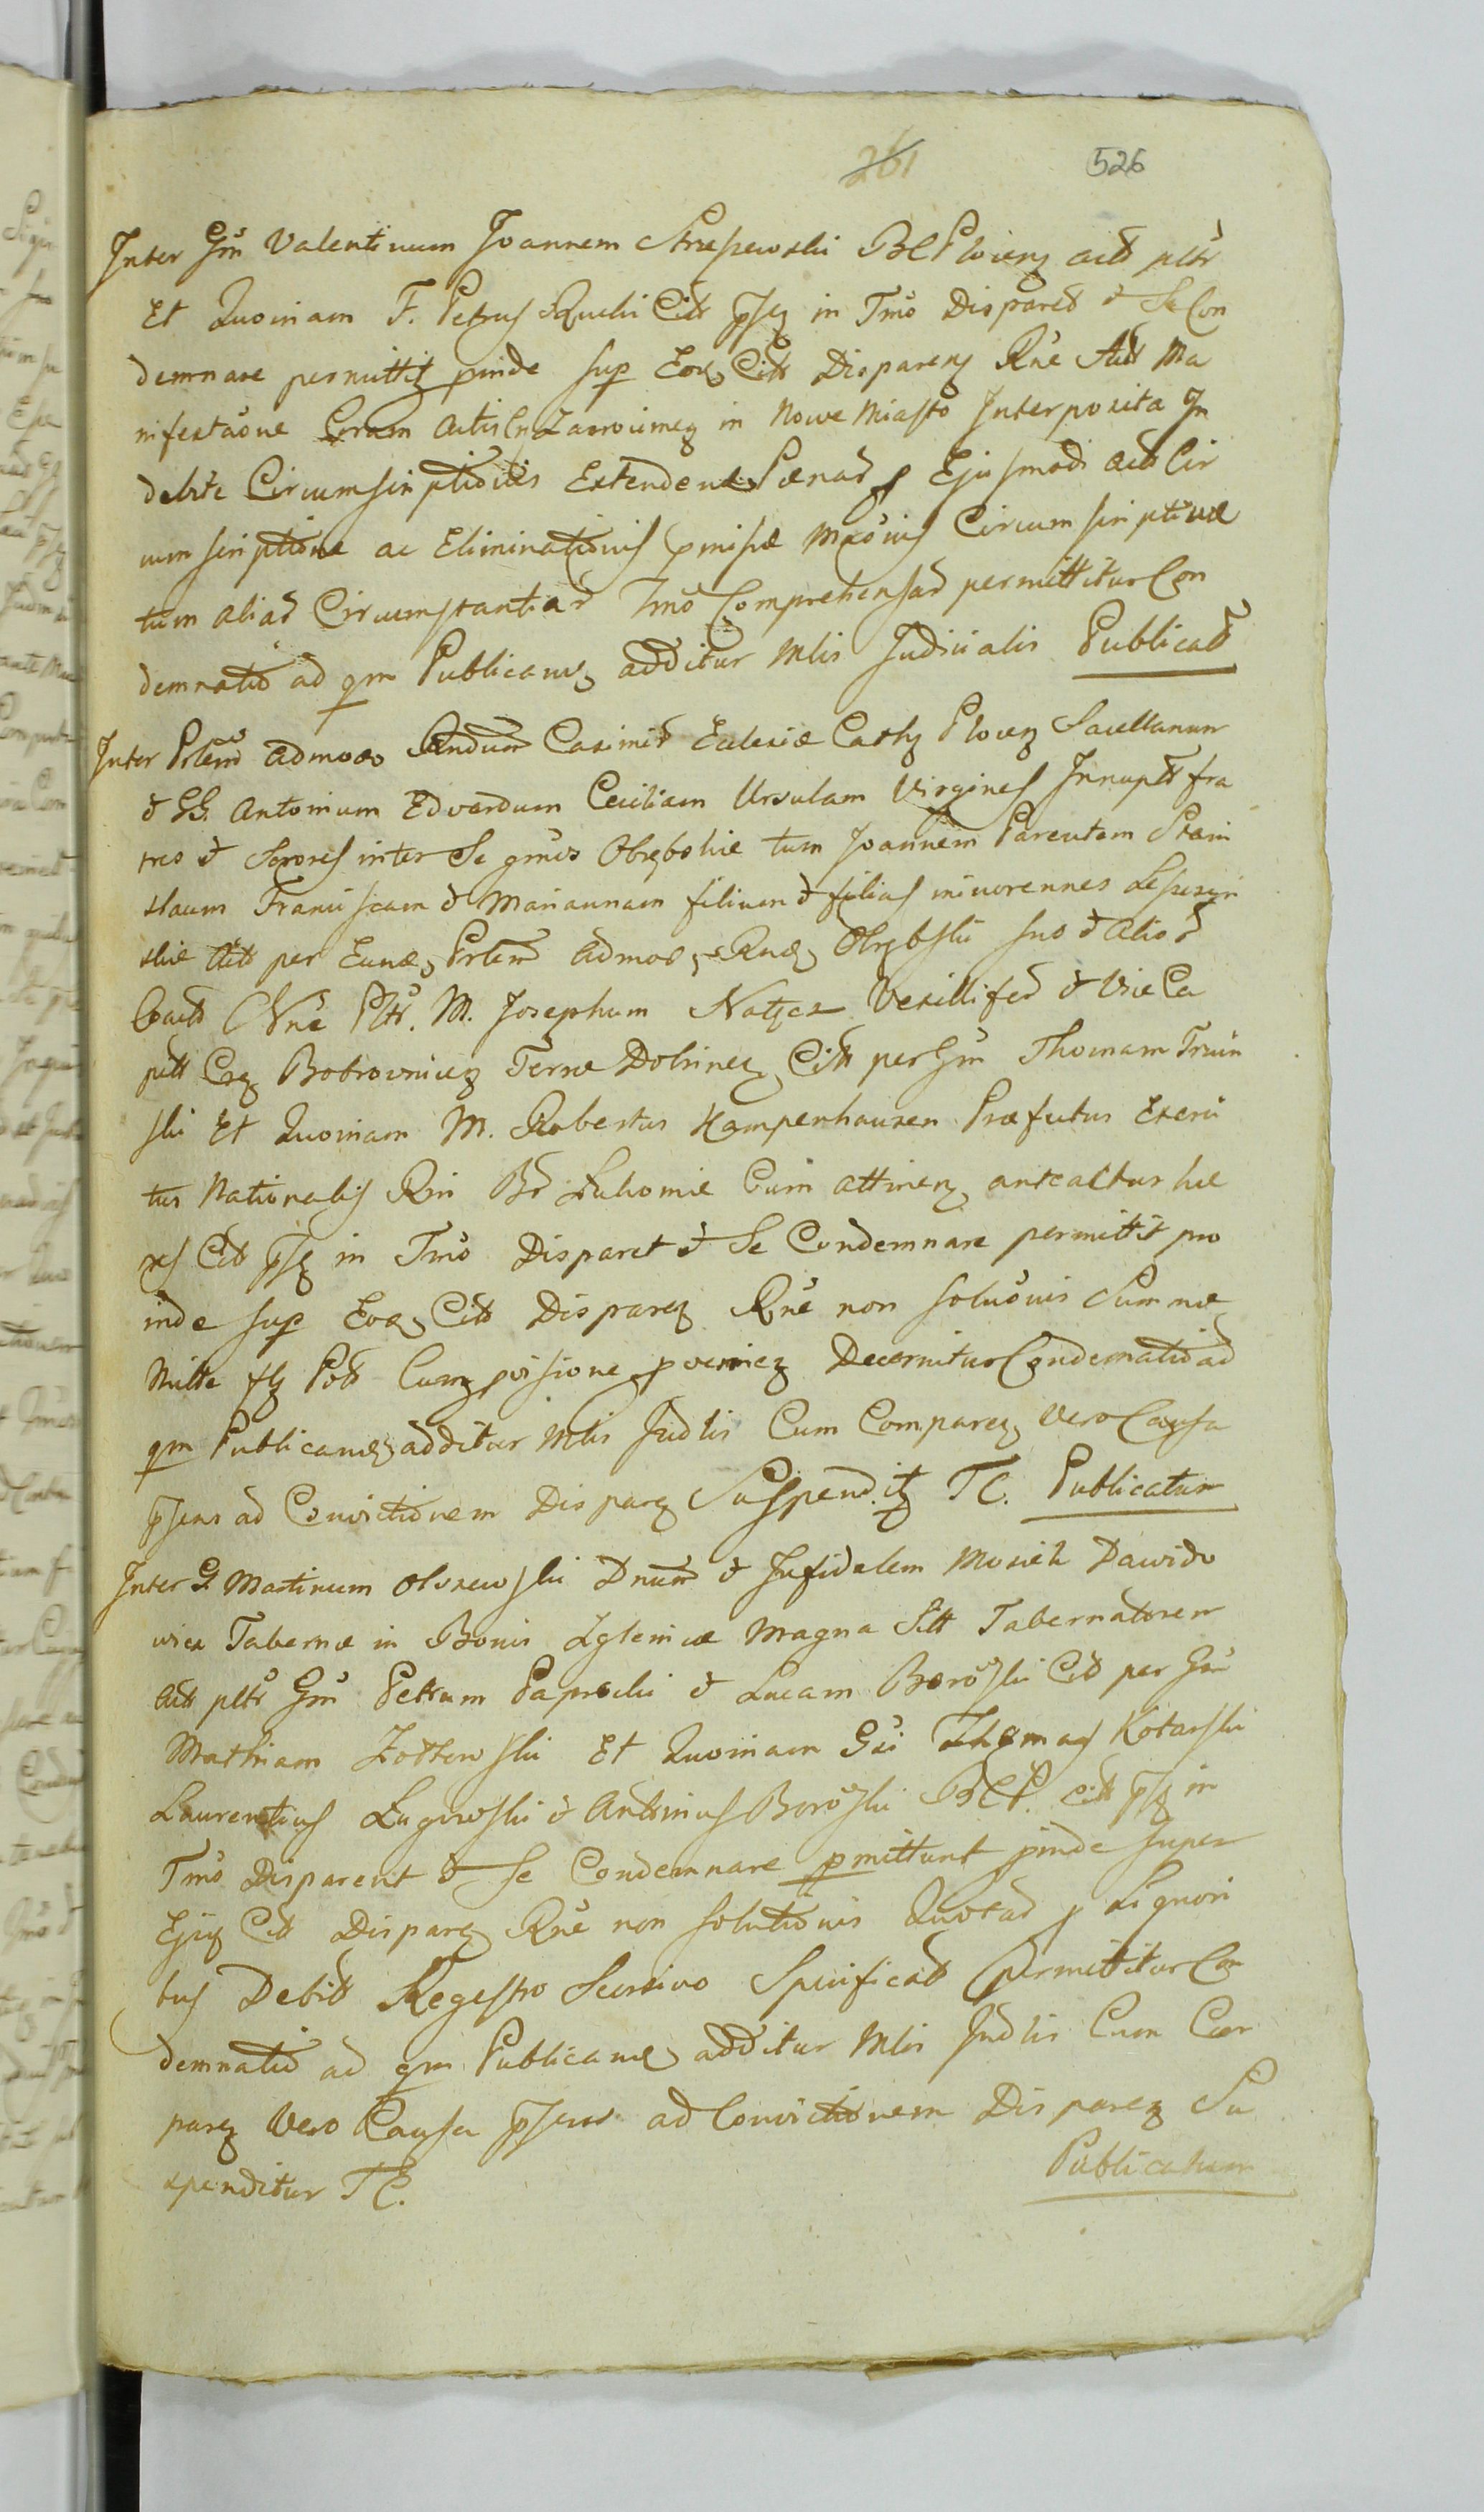 261 526
Inter Gm Valentinum Joannem BCPlocen act pltr
Et Quoniam F. Petrus Rucki Citt psq in Tmo Disparet & Se Con
demnare permittit pinde sup Eoq Citt Disparen Rne Act Ma
nifestaone Coram Actis in Nowe Miasto Interposita In
debite Extendend Pænas p Ejusmodi act Cir
cumscriptione ac Eliminationis pmisæ Circumscriptivæ
tum alias Circumstantias Tmo Comprehensas permittitur Con
demnatio ad qm Publicand additur Mlis Judicialis Publicat
Inter Prlem admoo Rndum Casimir Eclesiæ Cathz Plocen Sacellanum
& GG. Antonium Edvardum Ceciliam Ursulam Virgines Innupt fra
tres & Sorores inter Se gnos Obrębskie tum Joannem Parentem Stani
slaum Franciscam & Mariannam filium & filias minorennes
skie Act per Eund Prlem admod Rnd Obrębski suo & alior
Noe Pltr. M. Josephum Natęcz Vexillifer & Vice Ca
pitt Bobrovnicen Terræ Dobrinen Citt per Gm Thomam Trzcin
ski Et Quoniam M. Robertus Kampenhausen Præfectus Exerci
tus Nationalis Rni Br Łukomie Cum attinen anteactus hæ
res Citt psq in Tmo Disparet & Se Condemnare permittit pro
inde sup Eoq Citt Disparen Rne non soluonis Summæ
Mille flz Pol Cum pvisione pvenien Decernitur Condemnatio ad
qm Publicand additur Mlis Judlis Cum Comparen Vero Causa
psens ad Convictionem Disparen Suspenditz TC. Publicatum
Inter G. Martinum Olszewski Dnum & Infidelem Mosiek Dawido
wicz Tabernæ in Bonis Zglenice Magna Sitt Tabernatorem
Act pltr Gm Petrum Paprocki & Lucam Citt per Gm
Mathiam Zottowski Et Quoniam Gsi Thomas Kotarski
Laurentius Lugowski & Antonius BCP. citt psq in
Tmo Disparent & Se Condemnare pmittunt pinde super
Ejusq Citt Disparen Rne non solutionis Quotas p Liquori
bus Debit Regestro Seorsivo Specificatt permittitur Con
demnatio ad qm Publicand additur Mlis Judlis Cum Com
paren Vero Causa psens ad Convictionem Disparen Su
spenditur TC. Publicatum